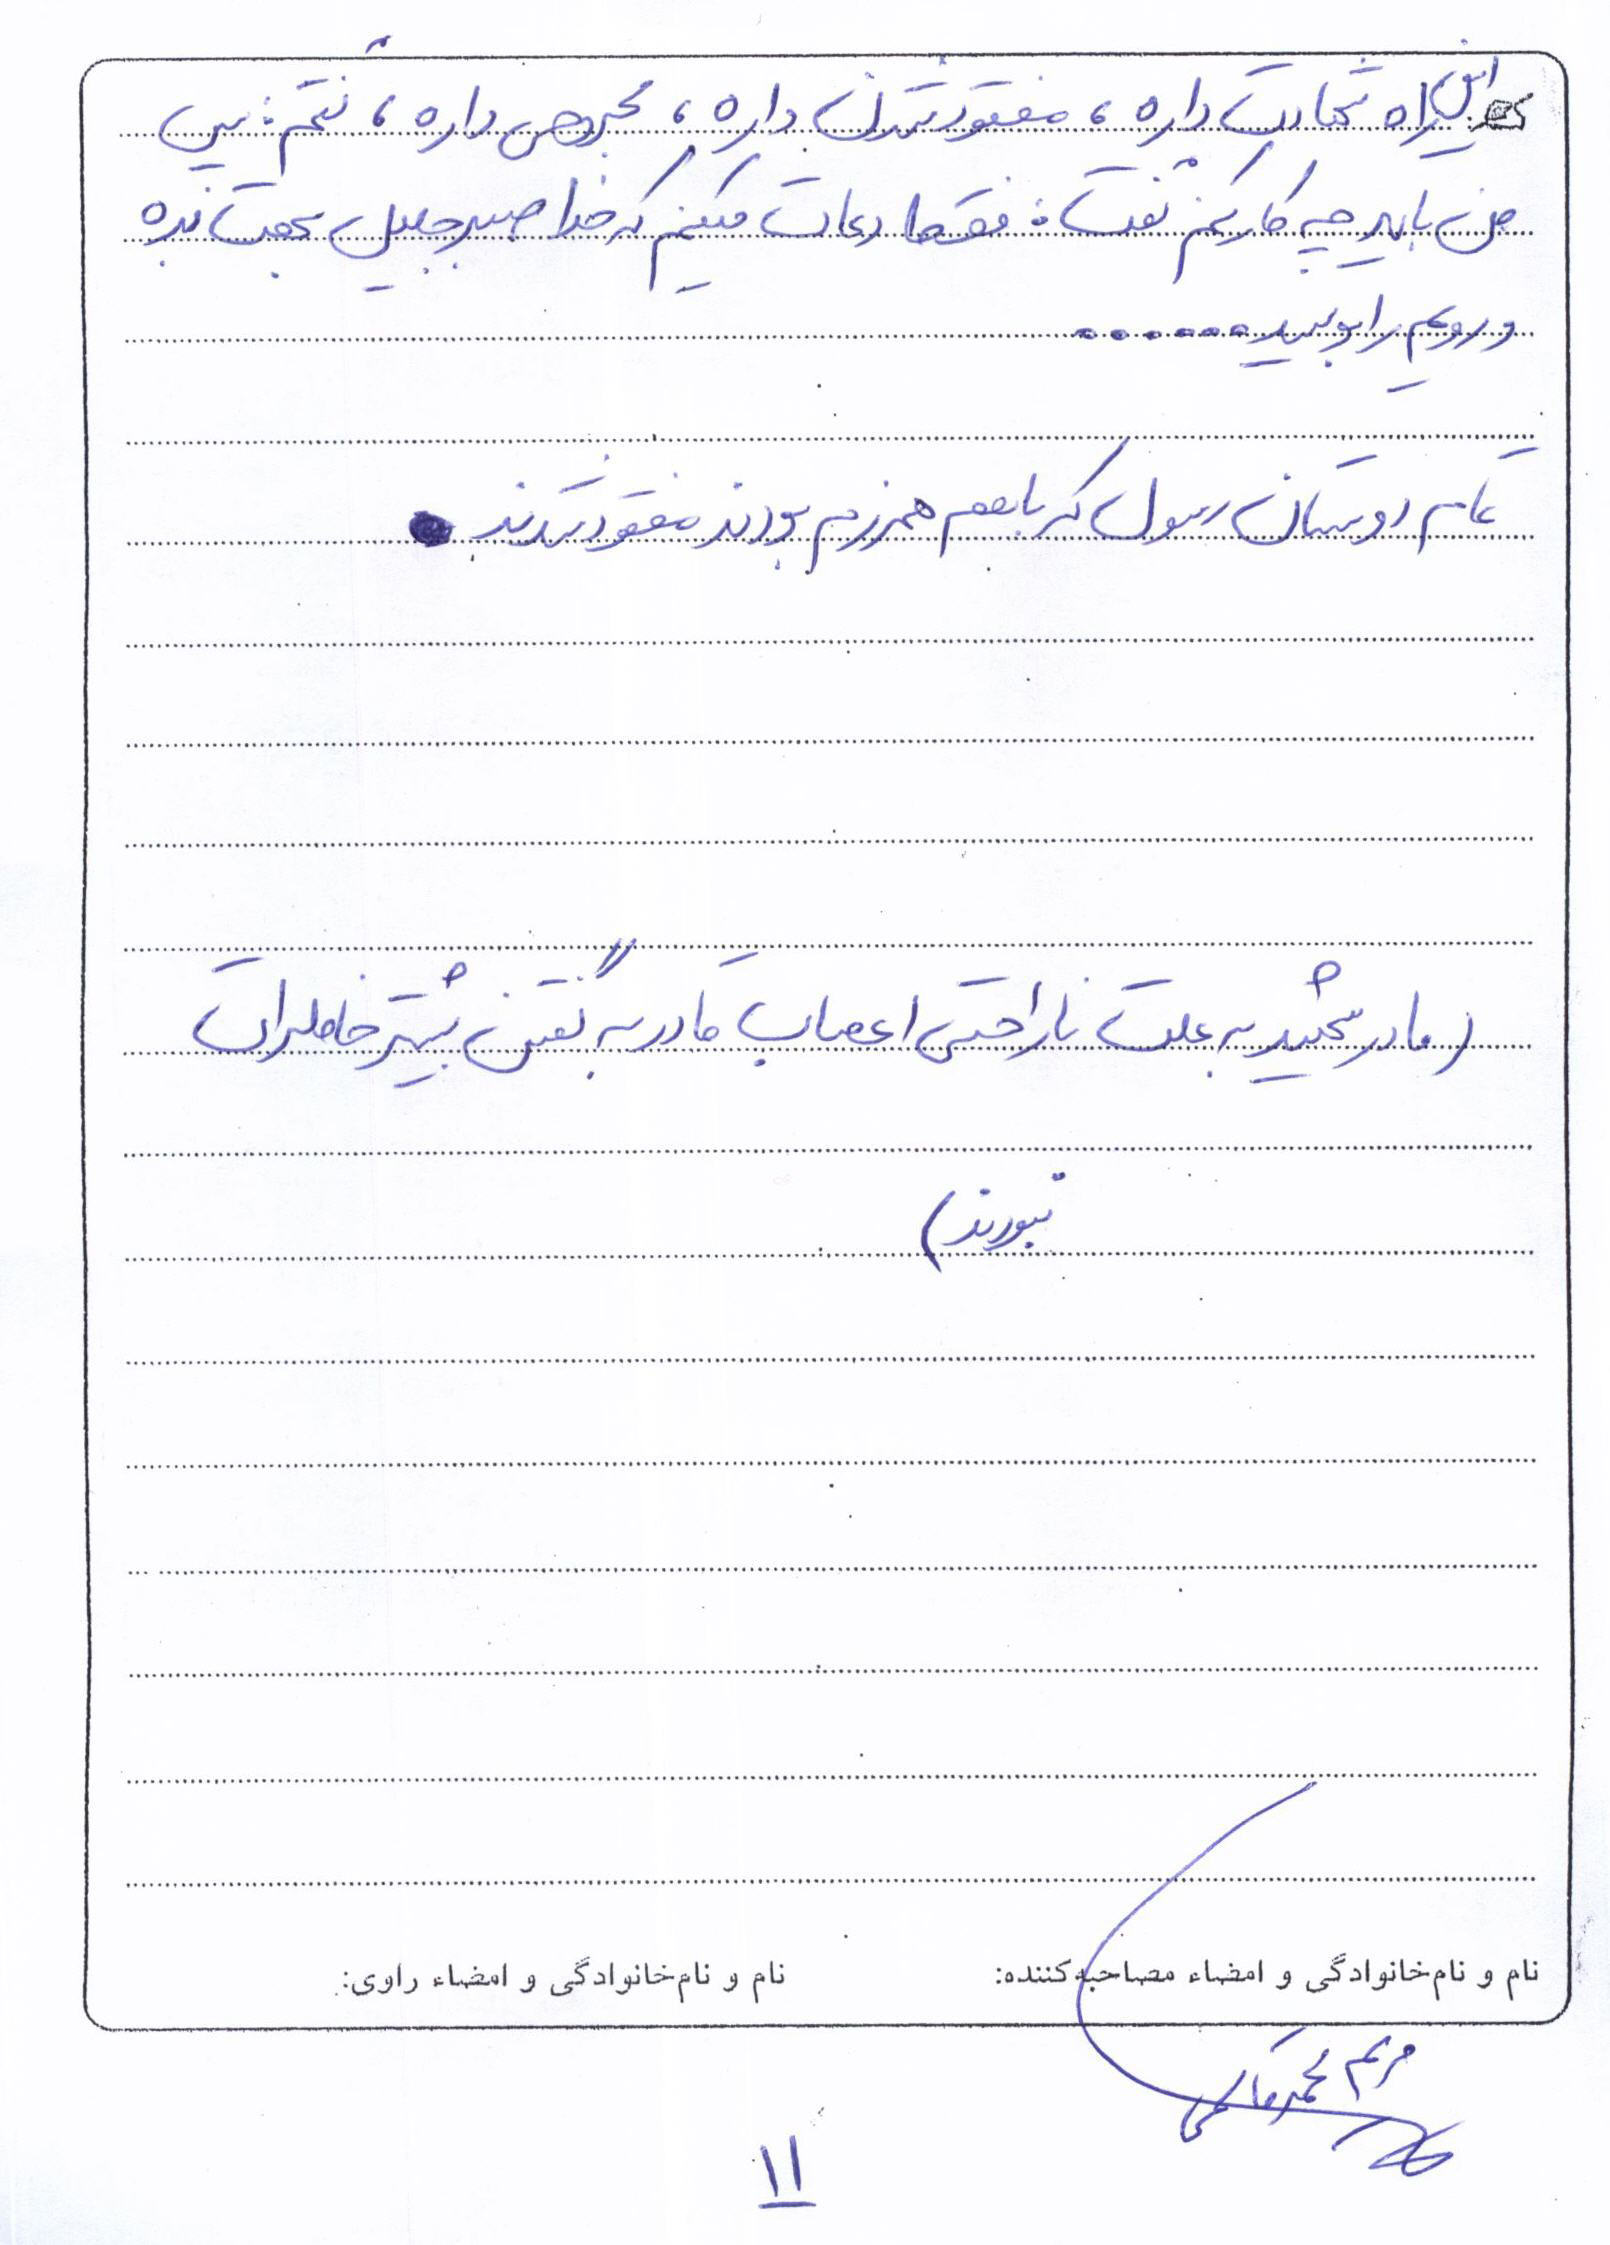 این راه شهادت داره، مفقود شدن داره، مجروحی داره، گفتم: پس
من باید چه کار بکنم گفت: فقط دعات میکنم که خدا صبر جمیل بهت بده
و رویم را بوسید......
تمام دوستان رسول که با هم همرزم بودند مفقود شدند.
(مادر شهید به علت ناراحتی اعصاب قادر به گفتن بیشتر خاطرات
نبودند)
نام و نام‌خانوادگی و امضاء مصاحبه‌کننده: نام و نام‌خانوادگی و امضاء راوی:
مریم محمدقاسمی
۱۱